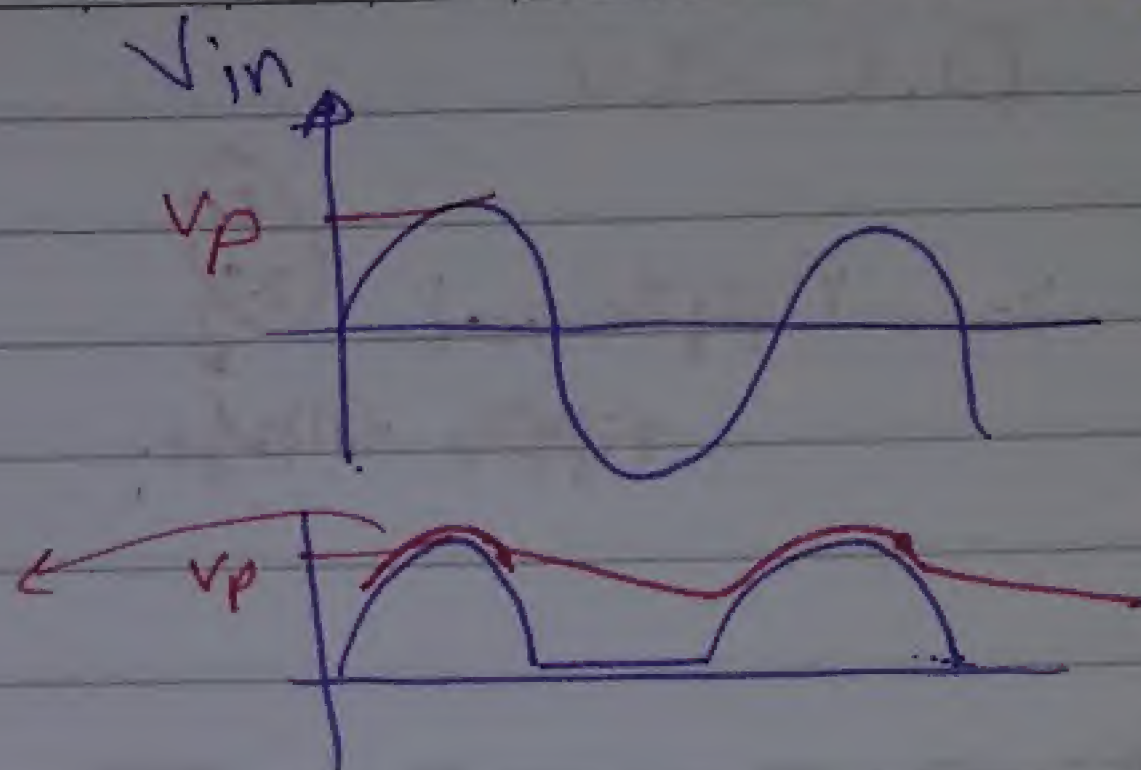 Vin
Vp
Vp